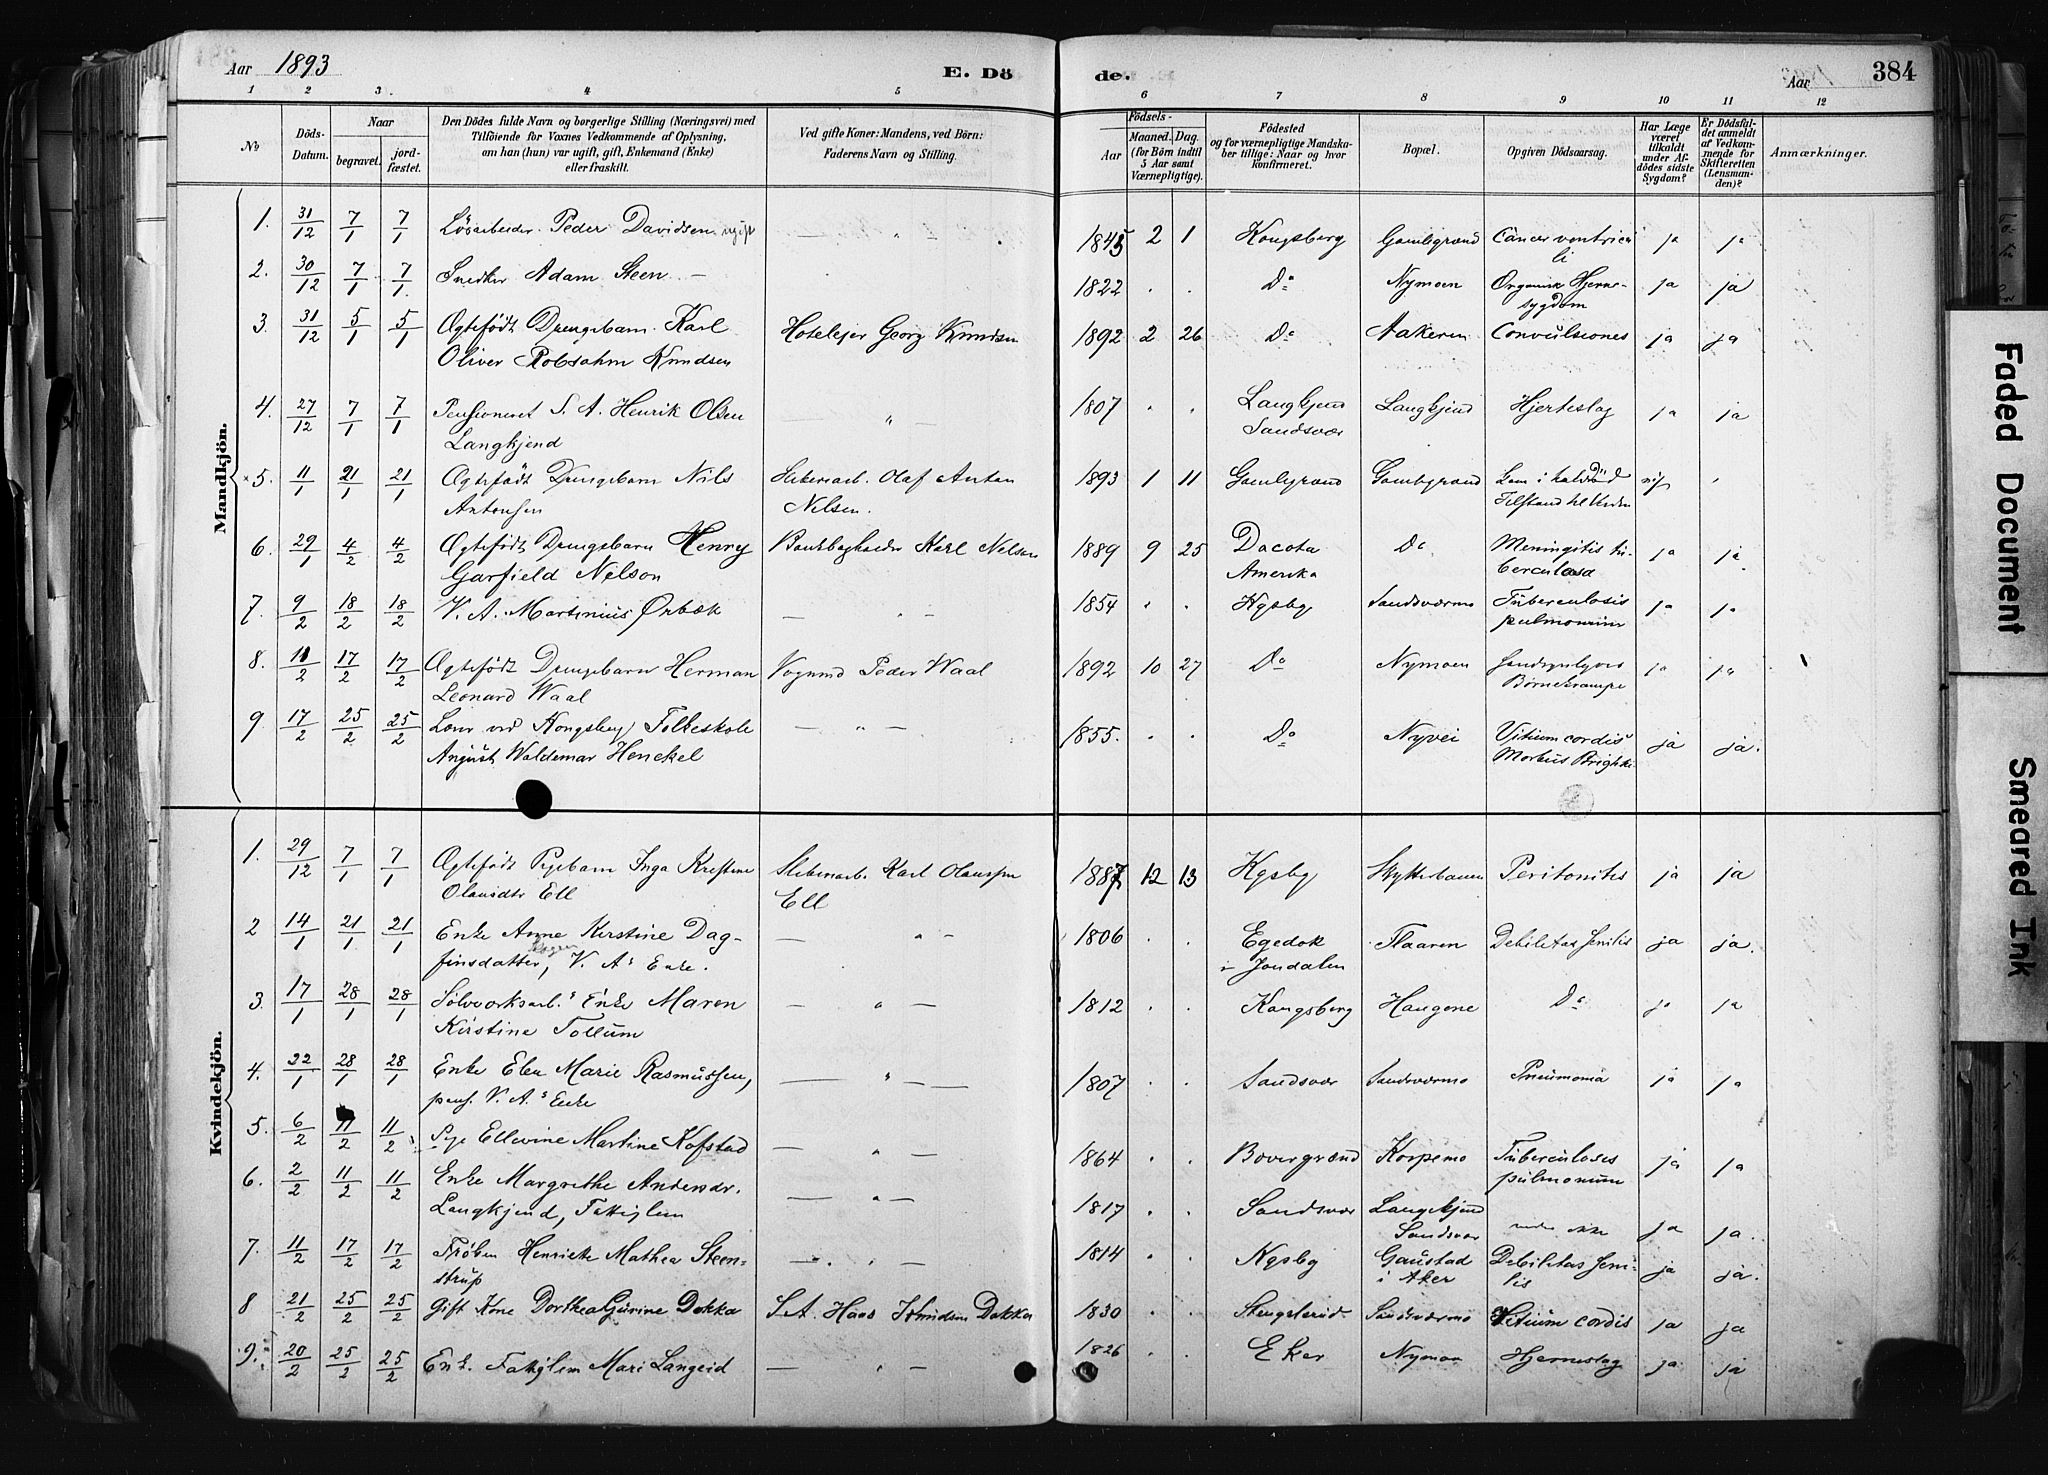 Aar 1893
E. Dö
de.
Aar
384
1 2 3. 4 5 6 7 8 9 10 11 12
No
Döds-Datum.
Naar
begravet.
jordfæstet.
Den Dödes fulde Navn og borgerlige Stilling (Næringsvei) med
Tilföiende for Voxnes Vedkommende af Oplysning,
om han (hun) var ugift, gift, Enkemand (Enke)
eller fraskilt.
Ved gifte Koner: Mandens, ved Börn:
Faderens Navn og Stilling.
Födsels-
Aar
Maaned. Dag.
(for Börn indtil
5 Aar samt
Værnepligtige).
Födested
og for værnepligtige Mandska-
ber tillige: Naar og hvor
konfirmeret.
Bopæl.
Opgiven Dödsaarsag.
Har Læge
været
tilkaldt
under Af-
dödes sidste
Sygdom?
Er Dödsfal-
det anmeldt
af Vedkom-
mende for
Skifteretten
(Lensman-
den)?
Anmærkninger.
Mandkjön.
1. 31/12 7/1 7/1 Lösarbeider Peder Davidsen — " — 1845 2 1 Kongsberg Gombgrænd Cancer ventricu
li ja ja
2. 30/12 7/1 7/1 Snedker Adam Steen — 1822 . . Do Nymoen Organisk Hjerne-
sygdom ja ja
3. 31/12 5/1 5/1 Ægtefödt Drengebarn Karl Hoteleier Georg Knudsen 1892 2 26 Do Aakeren Convulsiones ja ja
Oliver Robsahm Knudsen
4. 27/12 7/1 7/1 Pensioneret S. A. Henrik Olsen — " — 1807 . . Langkjend Langkjend Hjerteslag ja ja
Langkjend Sandsvær
×5. 11/1 21/1 21/1 Ægtefödt Drengebarn Nils Olaf Anton 1893 1 11 Gombgrænd Gombgrænd Kom i halvdöd
Antonsen Nelsen. Tilstand til Verden
6. 29/1 4/2 4/2 Ægtefödt Drengebarn Henry Karl Nelson 1889 9 25 Dacota Do Meningitis tu-
Garfield Nelson Amerika berculosa ja ja.
7. 9/2 18/2 18/2 V. A. Martinius Ørbæk — " — 1854 . . Kgsbg Sandsværmo Tuberculosis
pulmonum ja ja
8. 11/2 17/2 17/2 Ægtefödt Drengebarn Herman Vognmd Peder Waal 1892 10 27 Do Nymoen
Leonard Waal Børnekrampe ja ja
9. 17/2 25/2 25/2 Lærer ved Kongsberg Folkeskole — " — 1855. . . Do Nyvei Vitium cordis
August Waldemar Henckel Morbus Brightii ja ja.
Kvindekjön.
1. 29/12 7/1 7/1 Ægtefödt Pigebarn Inga Kristine Slibenarb. Karl Olaussen 1887 12 13 Kgsbg Skytterbanen Peritonitis ja ja
Olausdtr Ell Ell
2 14/1 21/1 21/1 Enke Anne Kirstine Dag- — " — 1806 . . Egedok Flaaren Debilitas senilis ja ja.
finsdatter, V. A.s Enke. i Jondalen
3. 17/1 28/1 28/1 Sölvværksarb.s Enke Maren — " — 1812 . . Kongsberg Haugene Do ja ja
Kirstine Tollum
4. 22/1 28/1 28/1 Enke Elen Marie Rasmussen, — " — 1807 . . Sandsvær Sandsværmo Pneumonia ja ja
pens. V. A.s Enke
5. 6/2 11/2 11/2 Pige Ellevine Martine Kofstad — " — 1864 . . Bævergrænd Korpemo Tuberculosis
pulmonum ja ja
6. 2/2 11/2 11/2 Enke Margrethe Andersdr. — " — 1817 . . Sandsvær Langkjend
Langkjend, Fattiglem Sandsvær ikke ja ja.
7. 11/2 17/2 17/2 Frøken Henriette Mathea Steen- — " — 1814 . . Kgsbg Gaustad Debilitas seni-
strup i Aker lis ja ja.
8 21/2 25/2 25/2 Gift Kone Dorthea Gurine Dokka S.A. Hans Dokka 1830 . . Stengelsrud Sandsværmo Vitium cordis ja ja
9. 20/2 25/2 25/2 Enk. Fattiglem Mari Langeid — " — 1826 . . Eker Nymoen Hjerneslag ja ja
Faded Document
Smeared Ink